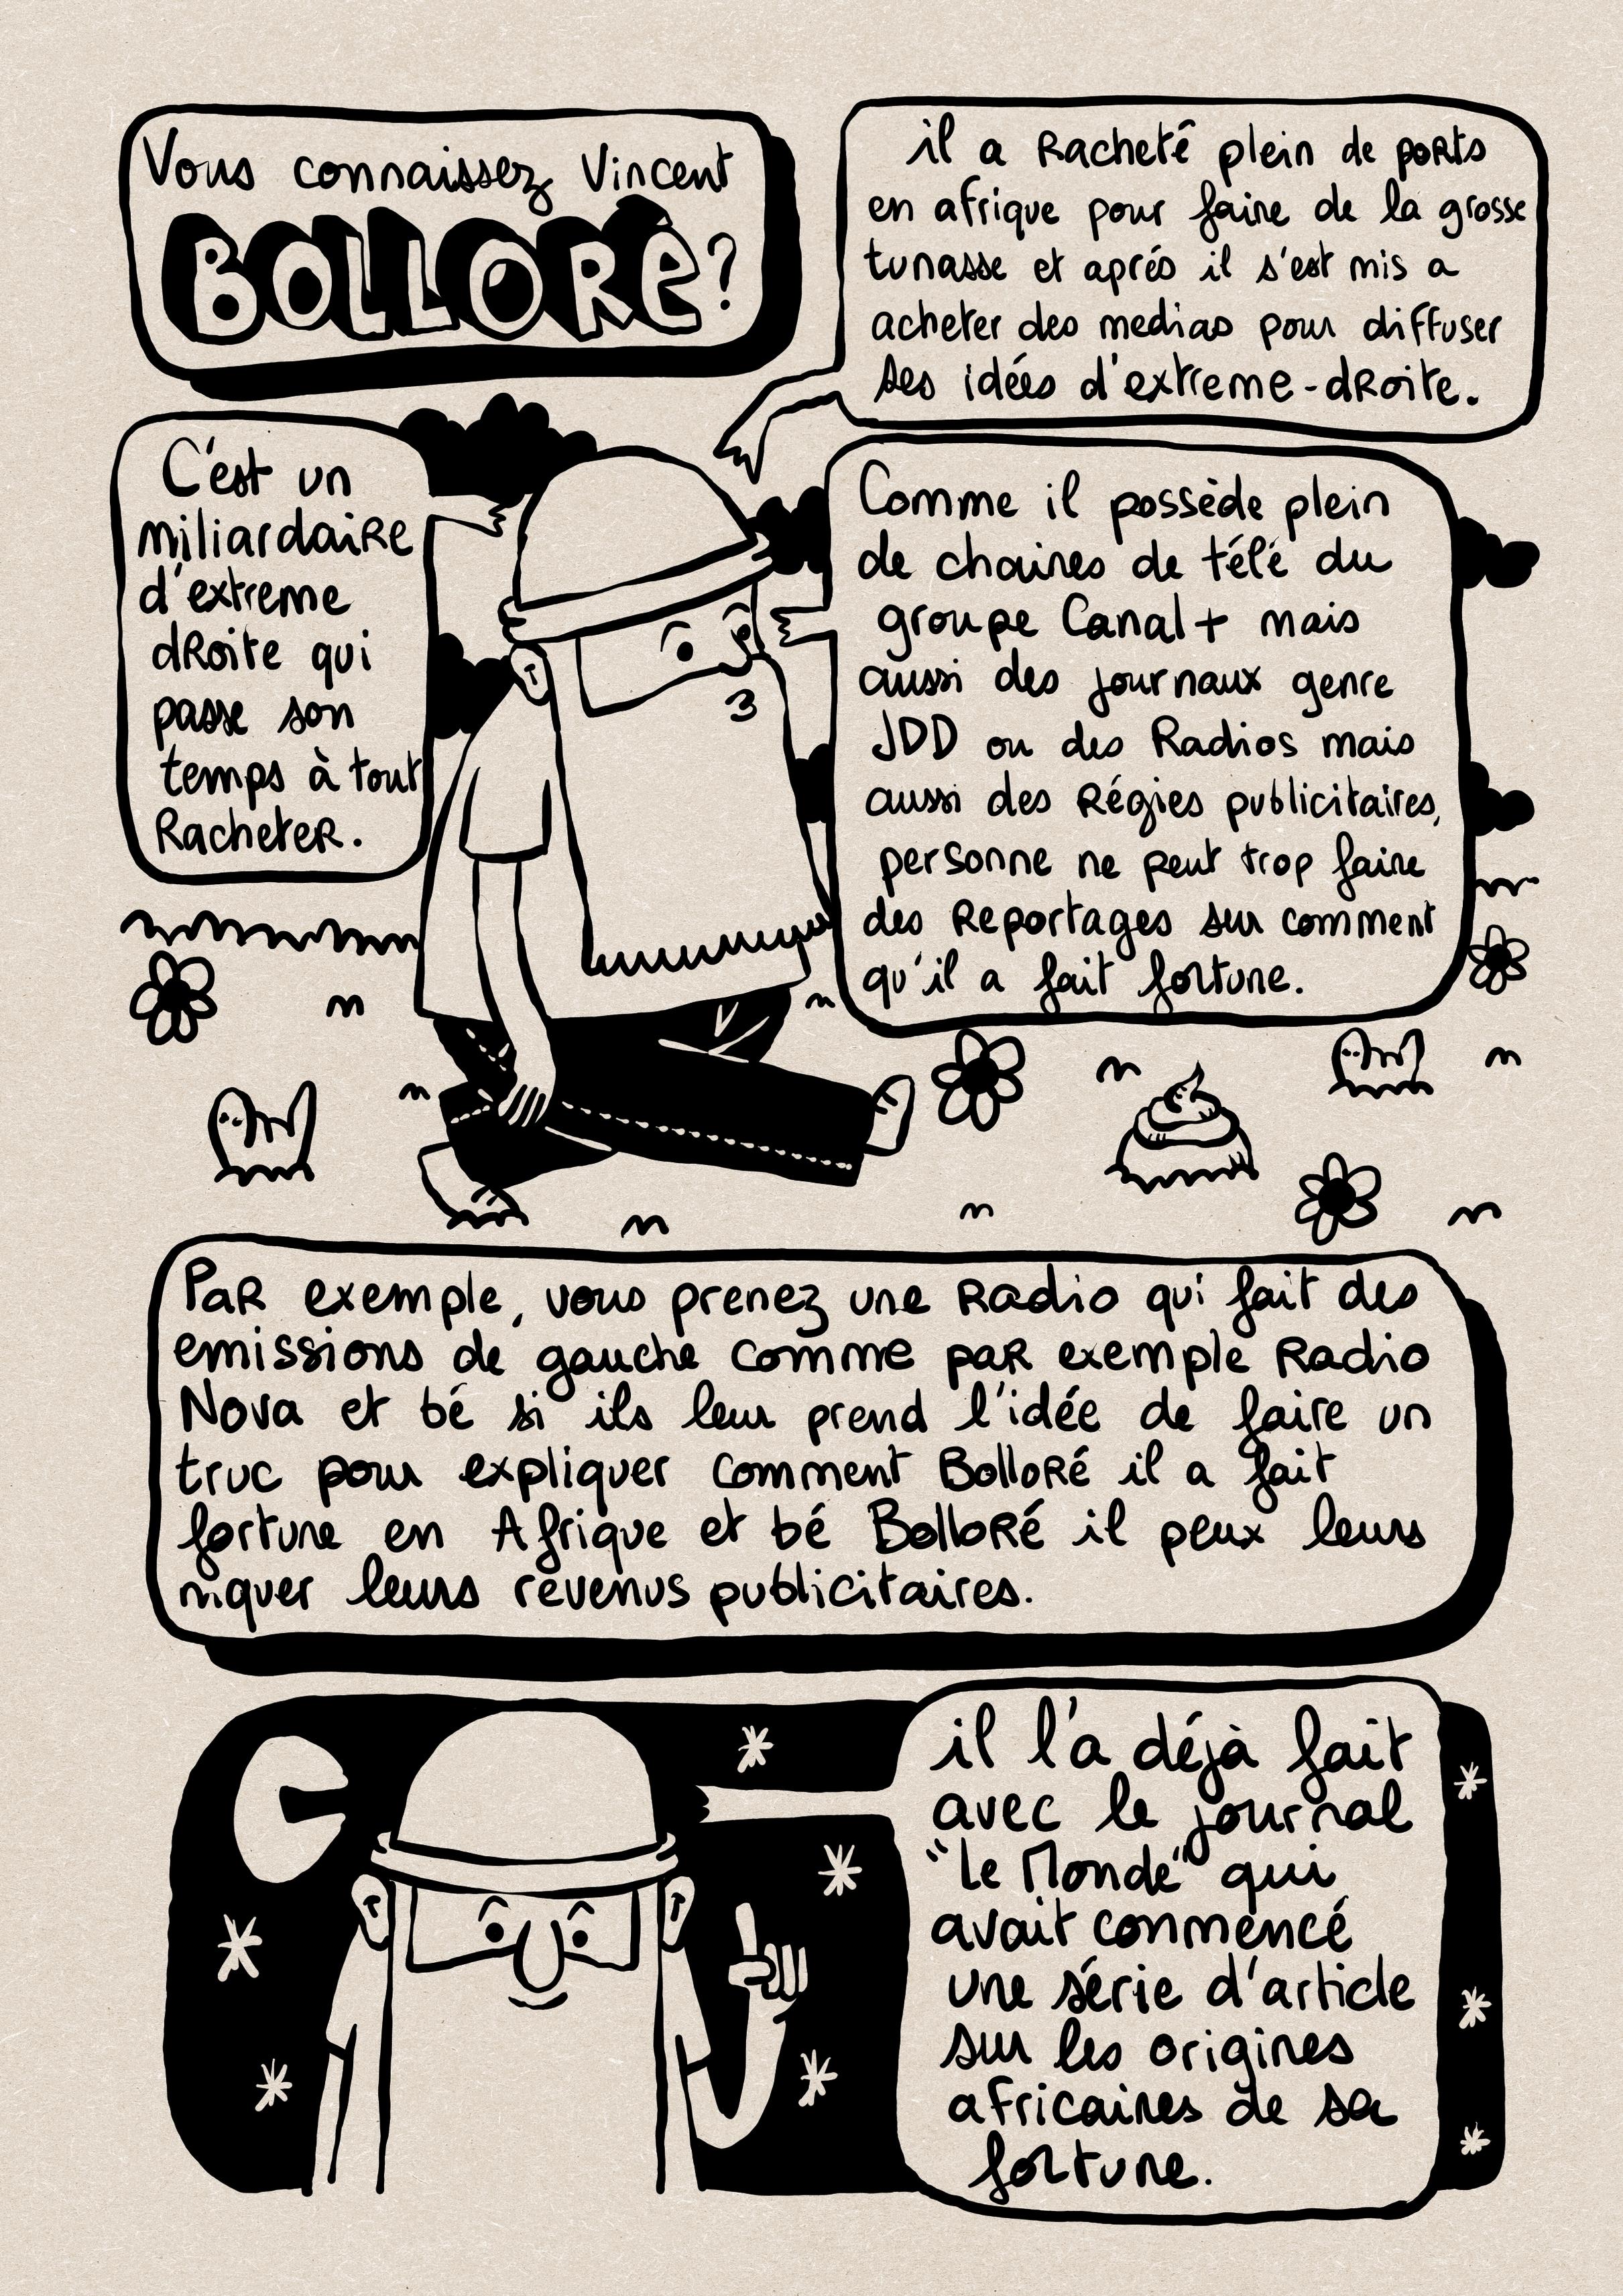 Vous connaissez Vincent
BOLLORÉ?
C'est un
miliardaire
d'extreme
droite qui
passe son
temps à tout
Racheter.
il a Racheté plein de ports
en afrique pour faire de la grosse
tunasse et aprés il s'est mis a
acheter des medias pour diffuser
ses idées d'extreme-droite.
Comme il possède plein
de chaines de télé du
groupe Canal+ mais
aussi des journaux genre
JDD ou des Radios mais
aussi des Régies publicitaires,
personne ne peut trop faire
des Reportages sur comment
qu'il a fait fortune.
Par exemple, vous prenez une Radio qui fait des
emissions de gauche comme par exemple Radio
Nova et bé si ils leur prend l'idée de faire un
truc pour expliquer comment Bolloré il a fait
fortune en Afrique et bé Bolloré il peux leurs
niquer leurs revenus publicitaires.
il l'a déjà fait
avec le journal
"Le Monde" qui
avait commencé
une série d'article
sur les origines
africaines de sa
fortune.